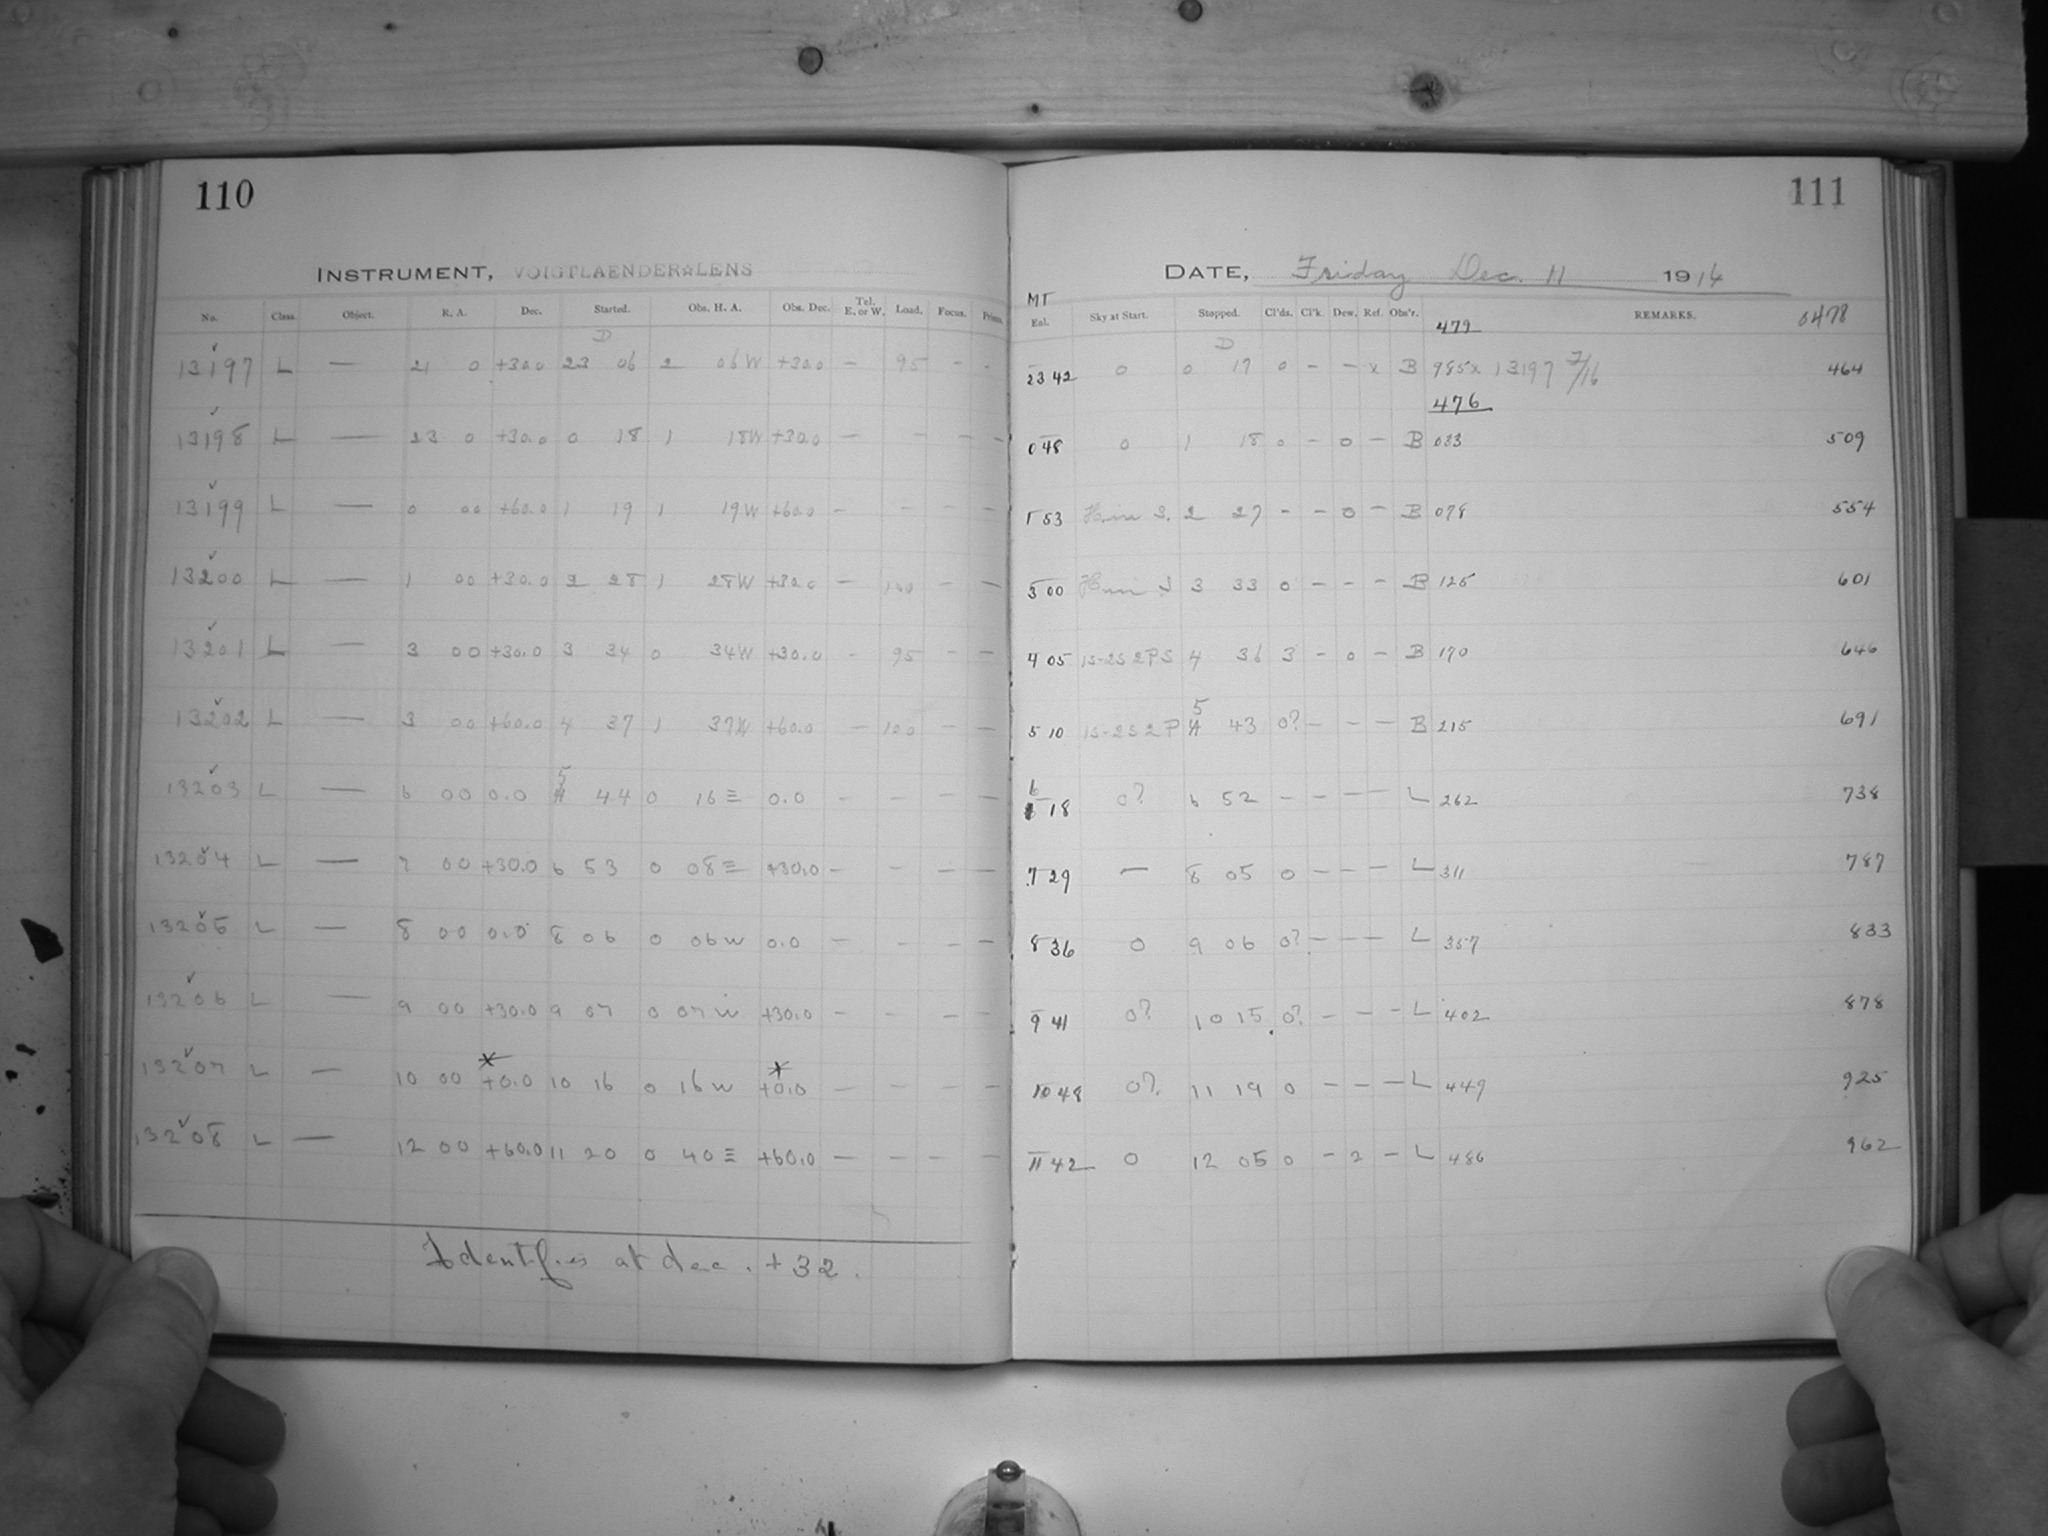 110
INSTRUMENT, VOIGTLAENDER☆LENS
No. Class. Object. R. A. Dec. Started. Obs. H. A. Obs. Dec. Tel. E. or W. Load. Focus. Prisms.
D
13197 L — 21 0 +30.0 23 06 2 06W +30.0 — 95 - -
13198 L — 23 0 +30.0 0 18 1 18W +30.0 — — — —
13199 L — 0 00 +60.0 1 19 1 19W +60.0 — — — —
13200 L — 1 00 +30.0 2 28 1 28W +30.0 — 100 — —
13201 L — 3 00 +30.0 3 34 0 34W +30.0 - 95 — —
13202 L — 3 00 +60.0 4 37 1 37W +60.0 — 100 — —
13203 L — 6 00 0.0 5 44 0 16E 0.0 — — — —
13204 L — 7 00 +30.0 6 53 0 08E +30.0 — — — —
13205 L — 8 00 0.0 8 06 0 06W 0.0 — - — —
13206 L — 9 00 +30.0 9 07 0 07W +30.0 — — — —
13207 L — 10 00 +0.0 10 16 0 16W +0.0 — — — —
13208 L — 12 00 +60.0 11 20 0 40E +60.0 — — — —
Identifies at dec. +32.
111
DATE, Friday Dec. 11 1914
MT
Eal. Sky at Start. Stopped. Cl'ds. Cl'k. Dew. Ref. Obs'r. REMARKS. 0478
479
D
23 42 0 0 17 0 - - x B 985x 13197 7/16 464
476
0 48 0 1 18 0 - 0 - B 033 509
1 53 2 27 - - 0 - B 078 554
3 00 3 33 0 - - - B 125 601
4 05 1S-2S 2PS 4 36 3 - 0 - B 170 646
5 10 1S-2S 2P 5 43 0? - - - B 215 691
6 18 0? 6 52 - - - - L 262 738
7 29 — 8 05 0 - - - L 311 787
8 36 0 9 06 0? - - - L 357 833
9 41 0? 10 15 0? - - - L 402 878
10 48 0? 11 19 0 - - - L 449 925
11 42 0 12 05 0 - 2 - L 486 962